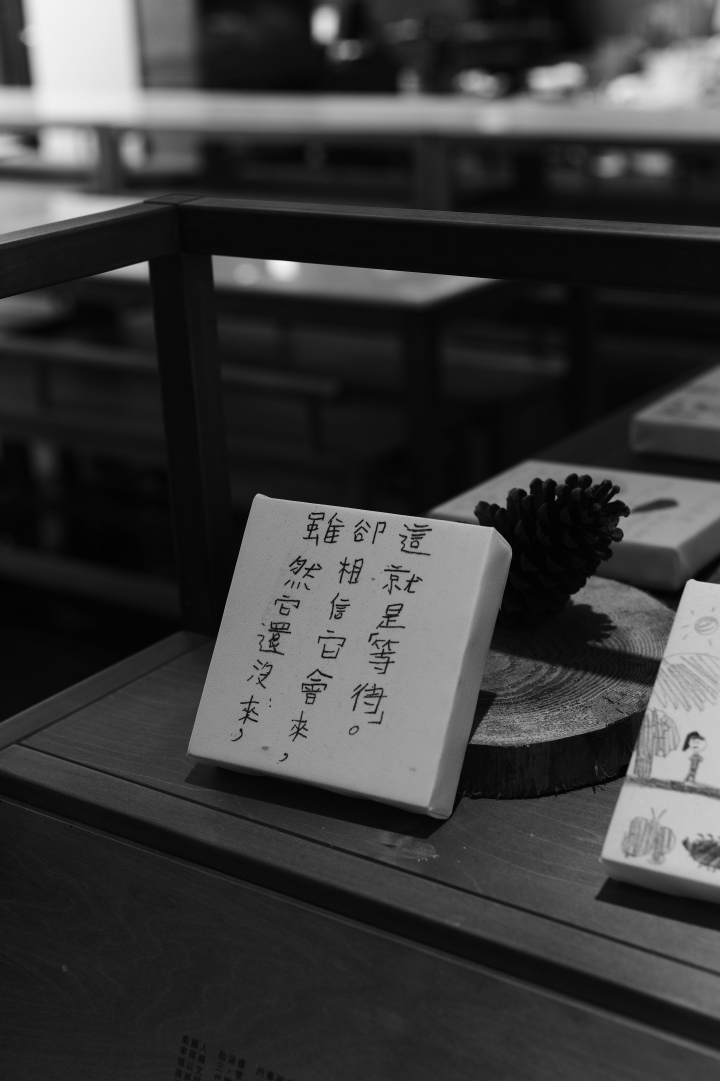 雖然它還沒來，
卻相信它會來，
這就是「等待」。